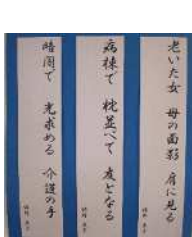 老いた女 母の面影 肩に見る
病棟で 枕並べて 友となる
暗闇で 光求める 介護の手